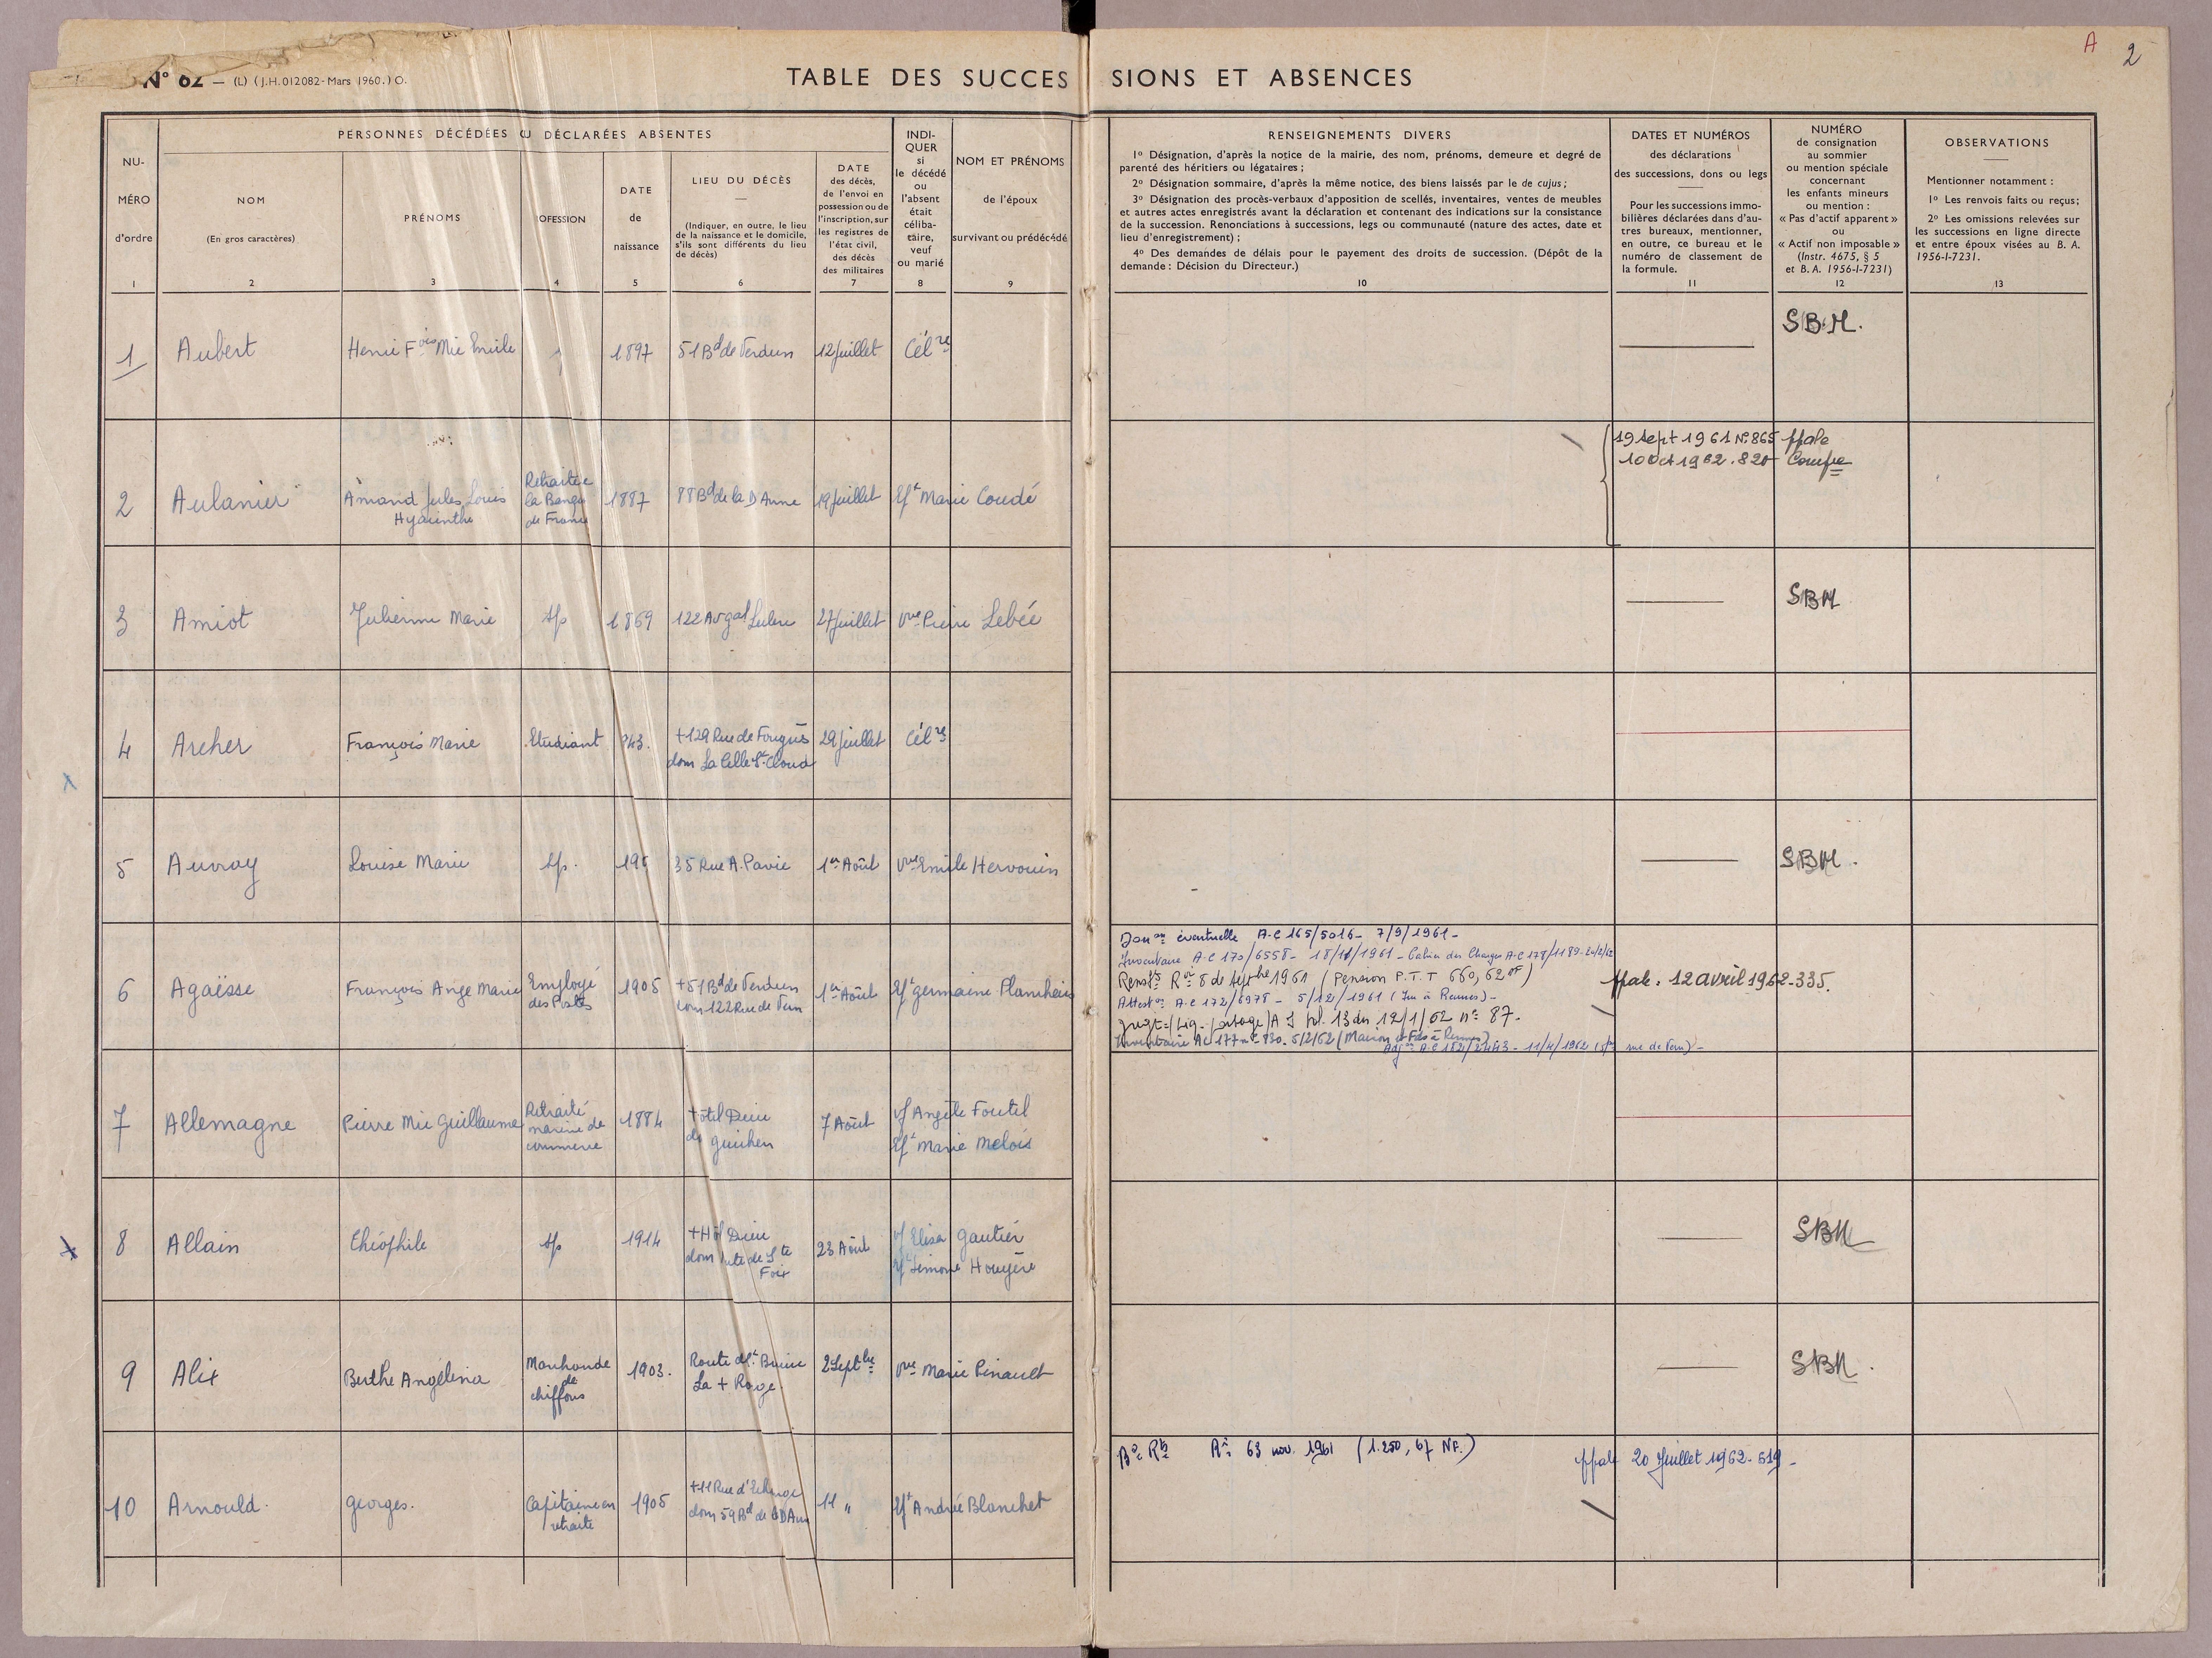 A 2
N° 62 — (L) (J.H. 012082 - Mars 1960.) O.
TABLE DES SUCCESSIONS ET ABSENCES
PERSONNES DÉCÉDÉES OU DÉCLARÉES ABSENTES
NU-
MÉRO
d'ordre
1
NOM
(En gros caractères)
2
PRÉNOMS
3
OFESSION
4
DATE
de
naissance
5
LIEU DU DÉCÈS
(Indiquer, en outre, le lieu
de la naissance et le domicile,
s'ils sont différents du lieu
de décès)
6
DATE
des décès,
de l'envoi en
possession ou de
l'inscription, sur
les registres de
l'état civil,
des décès
des militaires
7
INDI-
QUER
si
le décédé
ou
l'absent
était
céliba-
taire,
veuf
ou marié
8
NOM ET PRÉNOMS
de l'époux
survivant ou prédécédé
9
RENSEIGNEMENTS DIVERS
1° Désignation, d'après la notice de la mairie, des nom, prénoms, demeure et degré de
parenté des héritiers ou légataires ;
2° Désignation sommaire, d'après la même notice, des biens laissés par le de cujus ;
3° Désignation des procès-verbaux d'apposition de scellés, inventaires, ventes de meubles
et autres actes enregistrés avant la déclaration et contenant des indications sur la consistance
de la succession. Renonciations à successions, legs ou communauté (nature des actes, date et
lieu d'enregistrement) ;
4° Des demandes de délais pour le payement des droits de succession. (Dépôt de la
demande : Décision du Directeur.)
10
DATES ET NUMÉROS
des déclarations
des successions, dons ou legs
Pour les successions immo-
bilières déclarées dans d'au-
tres bureaux, mentionner,
en outre, ce bureau et le
numéro de classement de
la formule.
11
NUMÉRO
de consignation
au sommier
ou mention spéciale
concernant
les enfants mineurs
ou mention :
« Pas d'actif apparent »
ou
« Actif non imposable »
(Instr. 4675, § 5
et B. A. 1956-I-7231)
12
OBSERVATIONS
Mentionner notamment :
1° Les renvois faits ou reçus ;
2° Les omissions relevées sur
les successions en ligne directe
et entre époux visées au B. A.
1956-I-7231.
13
1 Aubert Henri Fois Mie Emile 1897 51 Bd de Verdun 12 Juillet Célre SBM.
2 Aulanier Amand Jules Louis Hyacinthe Retraité de la Banque de France 1887 88 Bd de la D Anne 19 Juillet Ext Marie Coudé
19 Sept 1961 N° 865 ppale
10 Oct 1962 . 820 Compre
3 Amiot Julienne Marie Sp 1869 122 Av gal Leclerc 27 Juillet Vve Pierre Lebée SBM
4 Archer François Marie Etudiant 943. +129 Rue de Fougères 29 Juillet Célre
dom La Celle St Cloud
5 Auvray Louise Marie Sp. 35 Rue A. Pavie 1er Août Vve Emile Hervouin SBM.
6 Agaësse François Ange Marie Employé des Postes 1905 +51 Bd de Verdun 1er Août germaine
dom 122 Rue de Vern
Donon éventuelle A.C 165/5016 - 7/9/1961 -
Inventaire A.C 170/6558 - 18/11/1961 - Cahier des Charges A.C 178/1189 - 20/2/62
Renstts Roi 8 de Septbre 1961 (Pension P.T.T 660,62 NF)
Attestn A.C 172/6978 - 5/12/1961 (Im à Rennes) -
Jugt = (Liq. partage) A J vol. 13 du 12/1/62 n° 87.
Inventaire AC 177 n° 830 - 5/2/62 (Maison et Fds à Rennes)
Adjon A.C 182/2443 - 11/4/1962 rue de Vern) -
ppale. 12 avril 1962 - 335.
7 Allemagne Pierre Mie Guillaume Retraité marine de commerce 1884 +ôtel Dieu 7 Août vf Angèle Foutel
guichen Marie Melois
8 Allain Théophile Sp 1914 +Hôt Dieu 23 Août vf Elisa Gautier SBM
dom de Ste Foix Simone Houyère
9 Alix Berthe Angélina Marchande de chiffons 1903. Route de St Brieuc 2 Septbre Vve Marie Pinault SBM.
La + Rouge.
10 Arnould. georges. Capitaine en retraite 1905 +11 Rue d'Echange 11 " André Blanchet
dom 59 Bd de la D Anne
R° 63 nov. 1961 (1.250,67 NF.) ppale 20 Juillet 1962 - 619 -